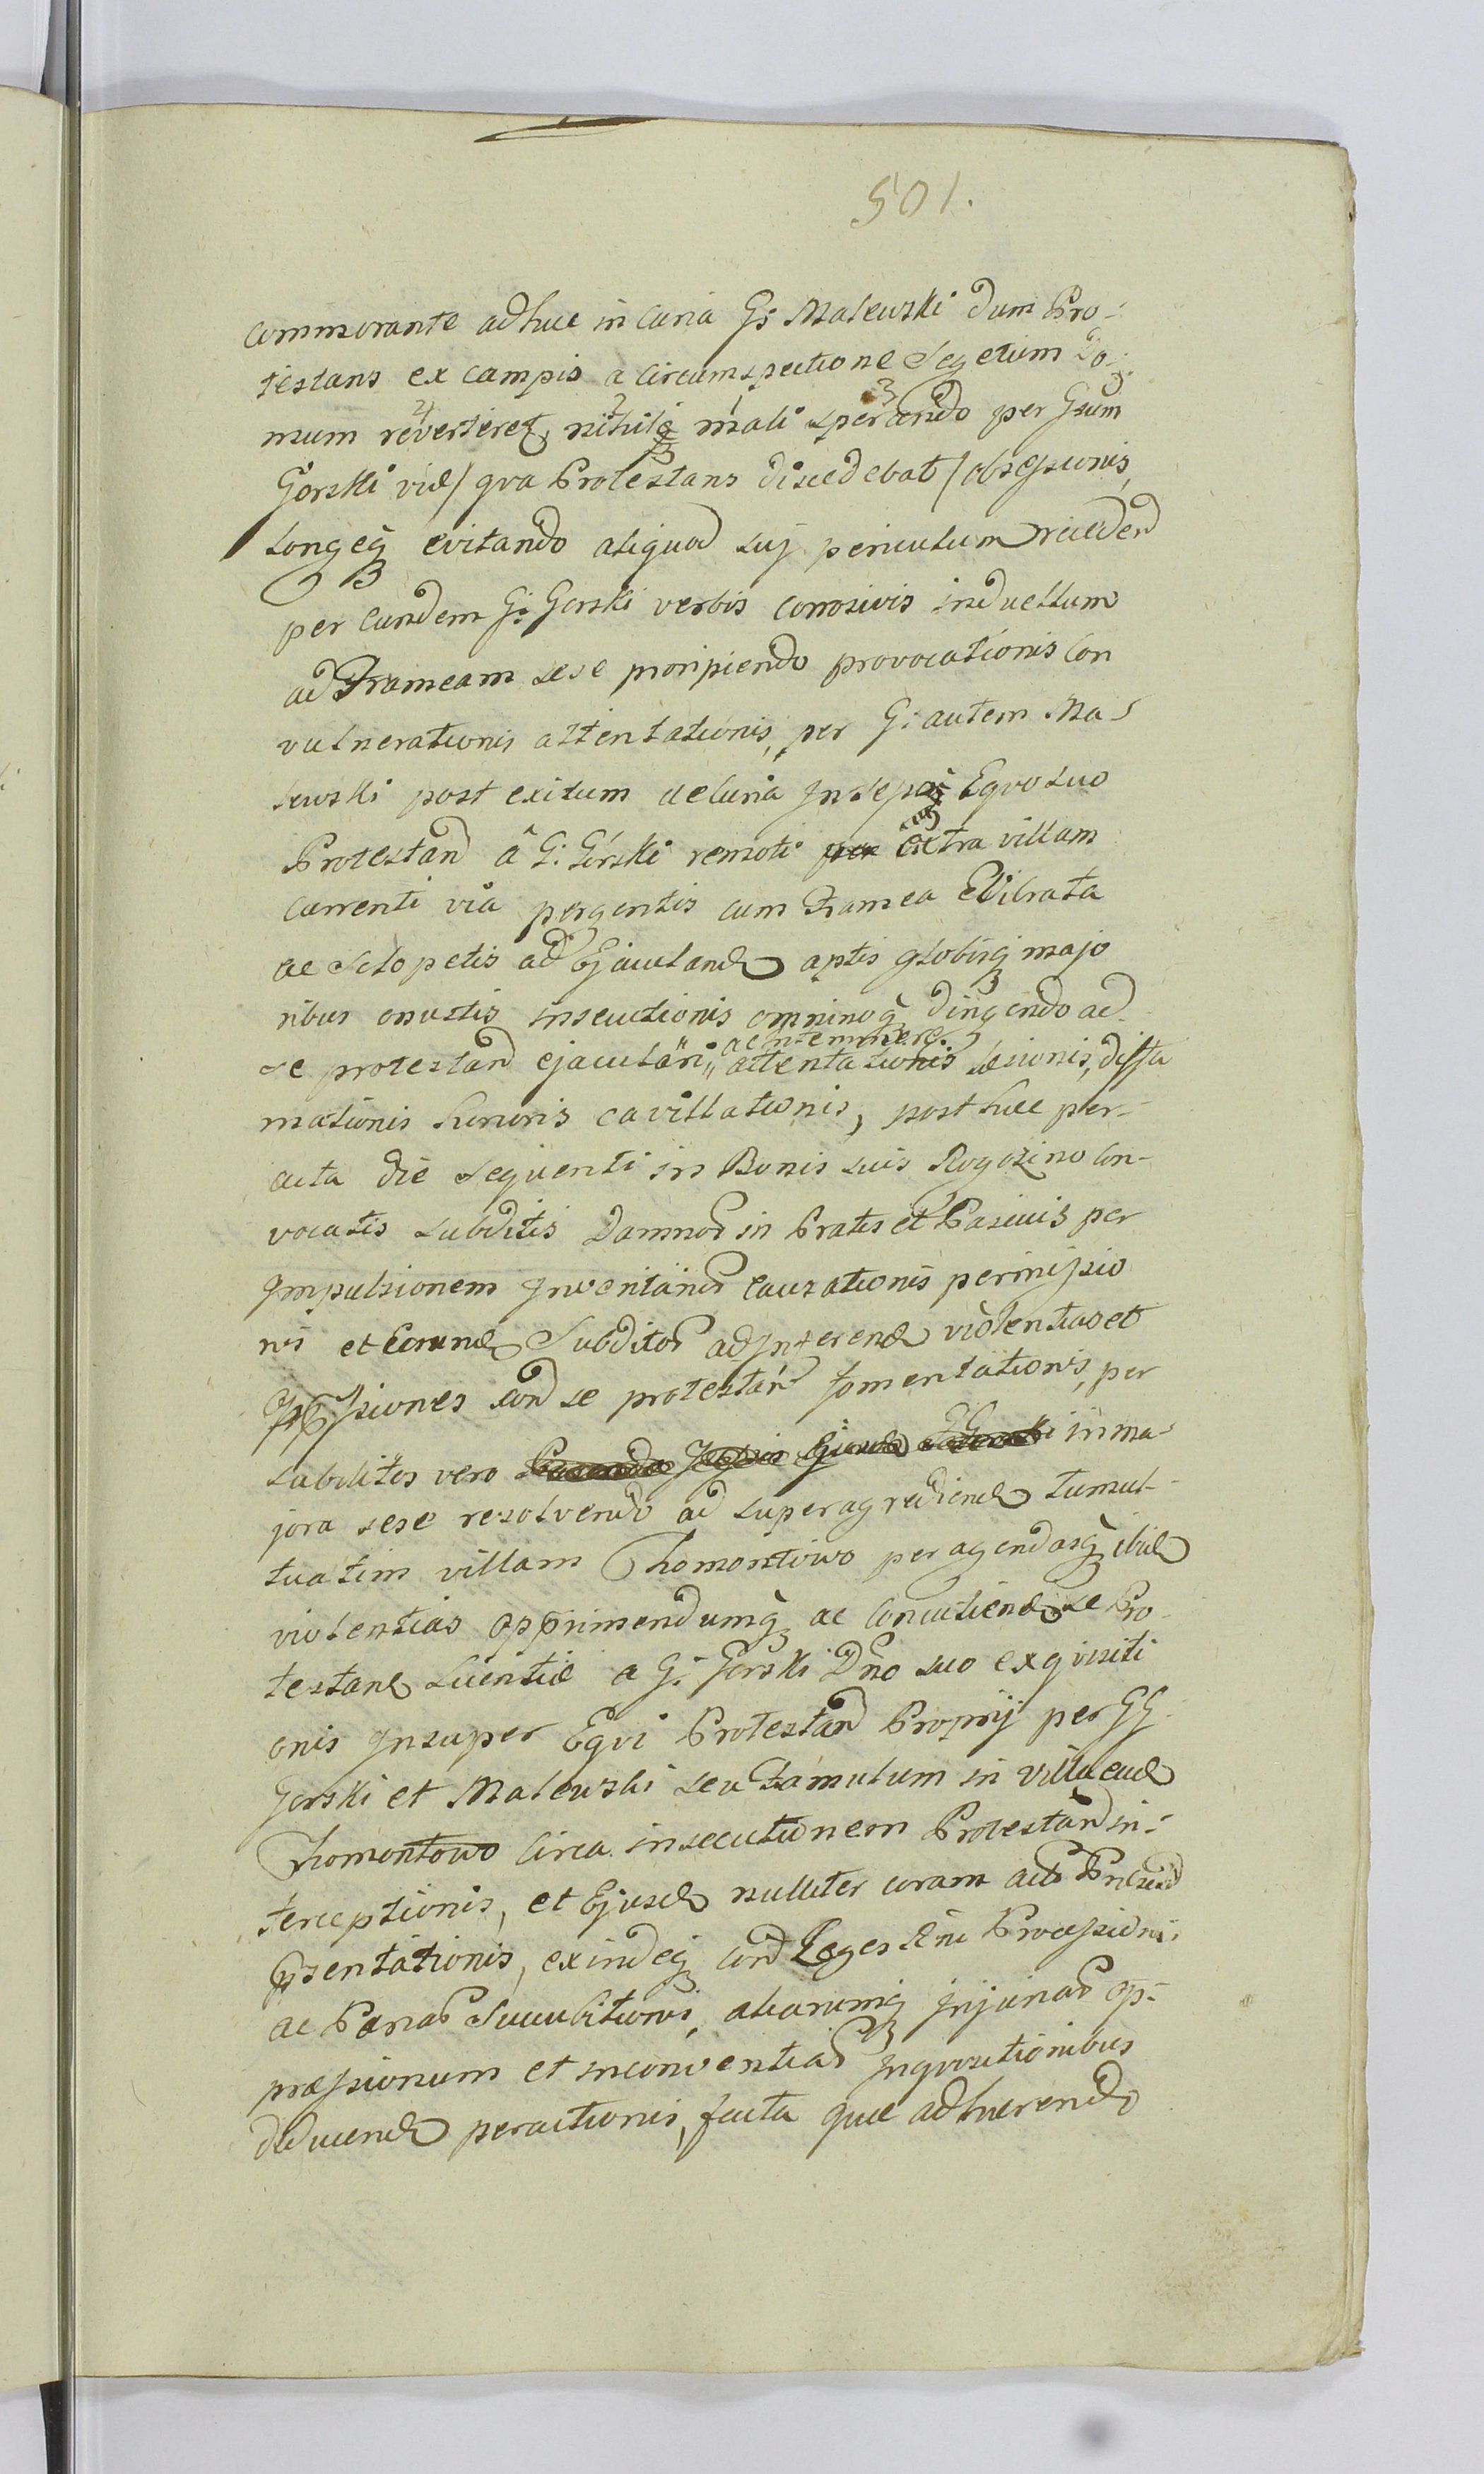 501.
commorante adhuc in Curia Gs Malewski dum Pro-
testans ex campis a circumspectione Segetum Do-
mum reverteret, nihilq mali sperando per Gsum
Gorski viae / qva Protestans discedebat / obsessionis,
longeq evitando aliquod sui periculum recedend
per eundem G: Gorski verbis corrosivis in duellum
ad Frameam sese proripiendo provocationis Con
vulnerationis attentationis, per G: autem Ma-
lewski post exitum de Curia Insepq Eqvo suo
Protestand â G: Górski remoti extra villam
currenti via pergentis cum Framea Evibrata
ac Sclopetis ad Ejaculand aptis globisq majo
ribus onustis insecutionis omninoq dirigendo ad
ac intemmere.
se protestand ejaculari, attentationis laesionis, diffa
mationis honoris cavillationis, post huc per-
acta die seqventi in Bonis suis Rogozino Con-
vocatis subditis Damnor in Pratis et Pascuis per
Impulsionem Inventarior causationis permissio
nis et Eorund Subditor ad Inferend violentias et
siones cond se protestan fomentationis, per
subditos vero in ma-
jora sese resolvendo ad superagrediend tumul-
tuatim villam Chomontowo peragendasq ibid
violentias opprimendumq ac Concutiend se Pro-
testand licentiae a G: Gorski Dno suo exqvisiti
onis Insuper Eqvi Protestand Proprij per GG.
Gorski et Malewski seu Famulum in villa ead
Chomontowo Circa insecutionem Protestand in-
terceptionis, et Ejusd nulliter coram actis
psentationis, exindeq cond Leges Processioni,
ac Paenar Succubitionis, aliarumq Injuriar op-
praessionum et inconvenientiar Inqvisitionibus
deducend peractionis, facta quae adhaerendo